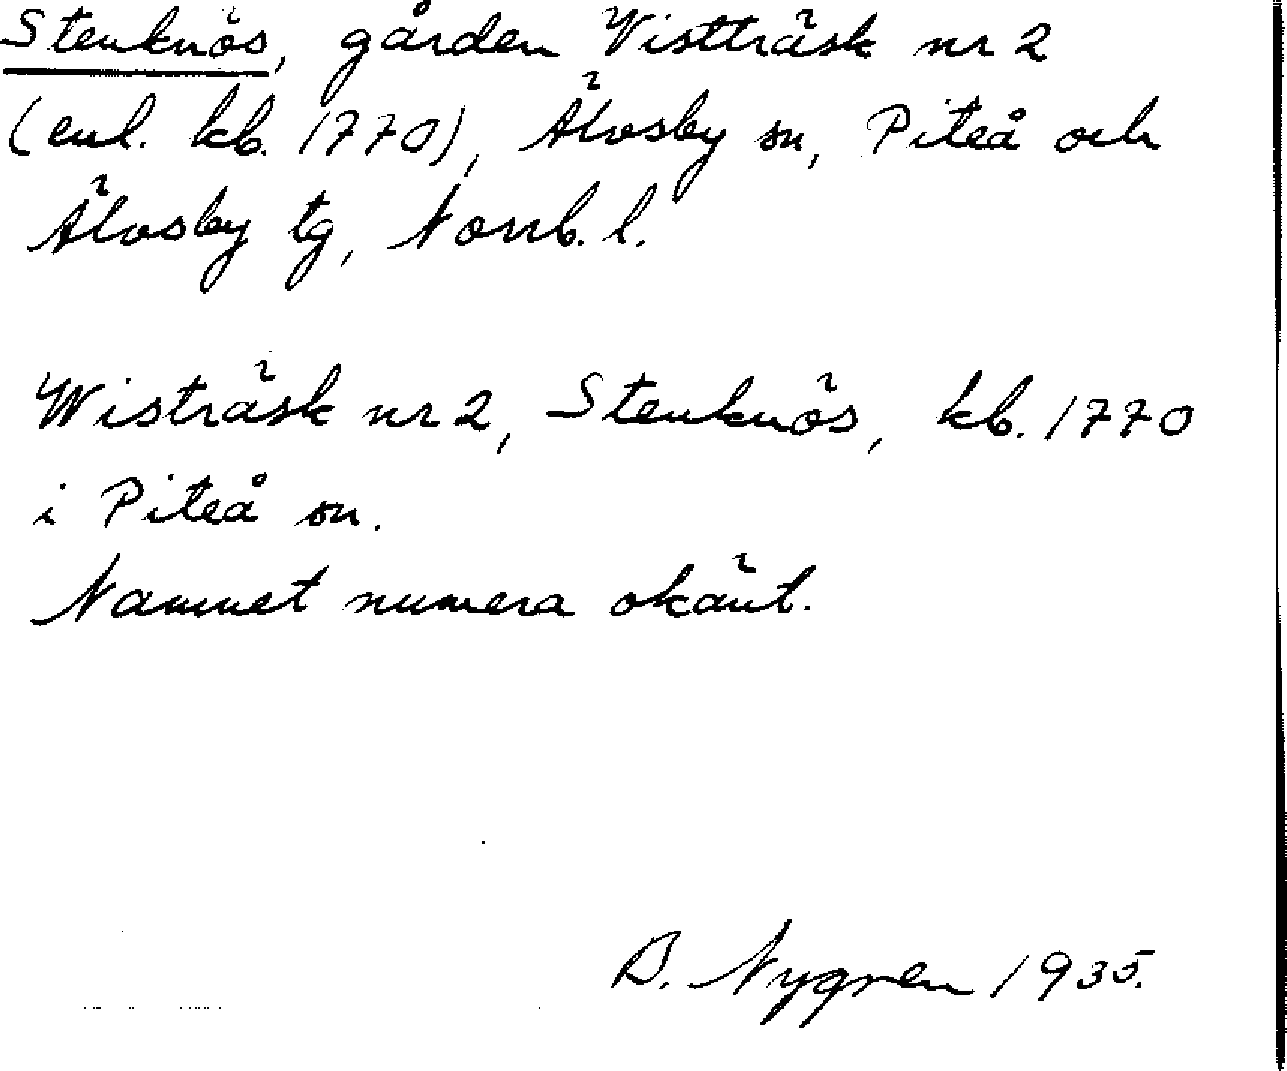 Stenknös, gården Vistträsk nr 2
(enl. kb. 1770), Älvsby sn, Piteå och
Älvsby tg, Norrb. l.
Wisträsk nr 2, Stenknös, kb. 1770
i Piteå sn.
Namnet numera okänt.
B. Nygren 1935.